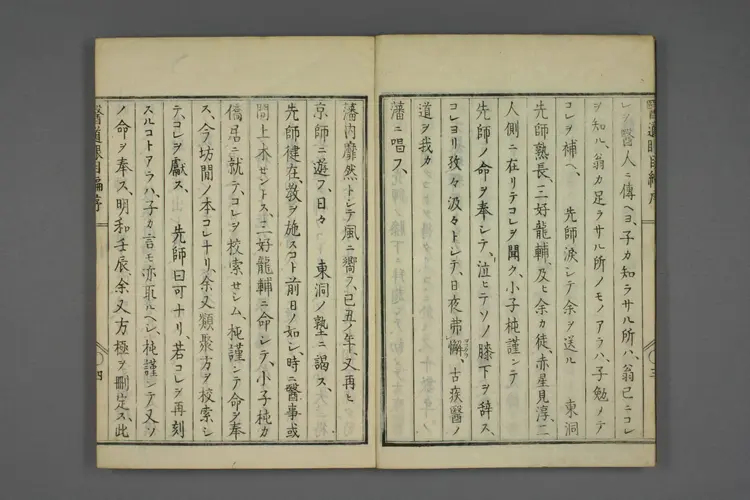 醫道眼目編序
レヲ醫人ニ傳ヘヨ、子カ知ラサル所ハ、翁已ニコレ
ヲ知ル、翁カ足ラサル所ノモノアラハ、子勉メテ
コレヲ補ヘ、先師涙シテ余ヲ送ル東洞
先師熟長、三好龍輔、及ヒ余カ徒、赤星見淳、二
人側ニ在リテコレヲ聞ク、小子㭁謹シテ
先師ノ命ヲ奉シテ、泣ヒテソノ膝下ヲ辞ス、
コレヨリ孜々汲々トシテ、日夜弗懈、古疾醫ノ
道ヲ我カ
藩ニ唱フ、
三
藩内靡然トシテ風ニ嚮フ、已丑ノ年、又再ヒ
京師ニ遊フ、日々東洞ノ塾ニ謁ス、
先師健在、教ヲ施スコト前日ノ如シ、時ニ醫事或
問上木セントス、三好龍輔ニ命シテ、小子㭁カ
僑居ニ就テ、コレヲ校索セシム、㭁謹ンテ命ヲ奉
ス、今坊間ノ本コレナリ、余又類聚方ヲ校索シ
テ、コレヲ獻ス、先師曰可ナリ、若コレヲ再刻
スルコトアラハ、子カ言モ亦取ルヘシ、㭁謹ンテ又ソ
ノ命ヲ奉ス、明和壬辰、余又方極ヲ刪定ス、此
醫道眼目編序
四